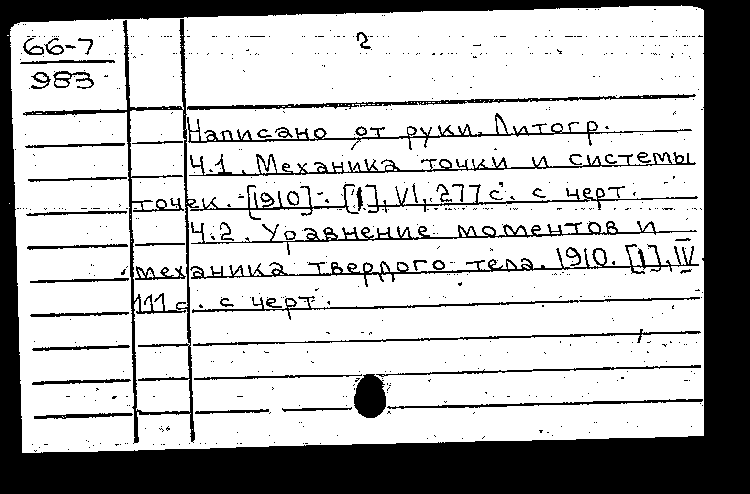 66-7
983
2
Написано от руки. Литогр.
Ч.1. Механика точки и системы
точек. - [1910]. [1], VI, 277 с. с черт.
Ч.2. Уравнение моментов и
механика твердого тела. 1910. [1], IV.
111 с. с черт.